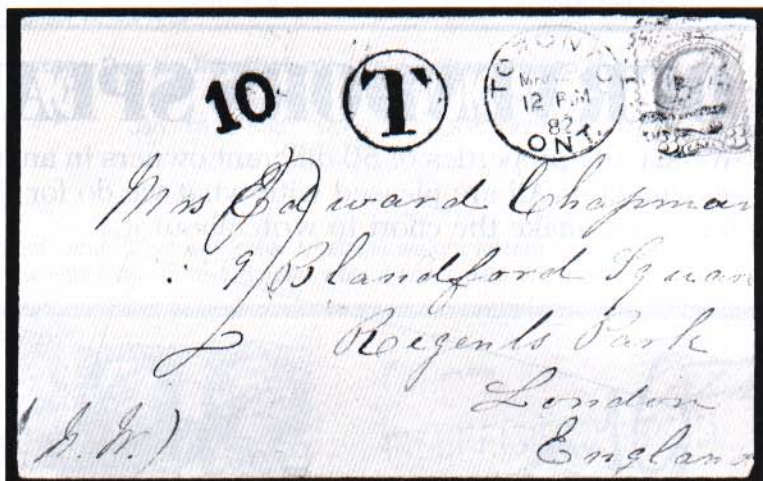 10 T TORONTO
12 P.M
82
ONT.
Mrs Edward Chapman
9 Blandford Square
Regents Park
London
England
(N. W.)